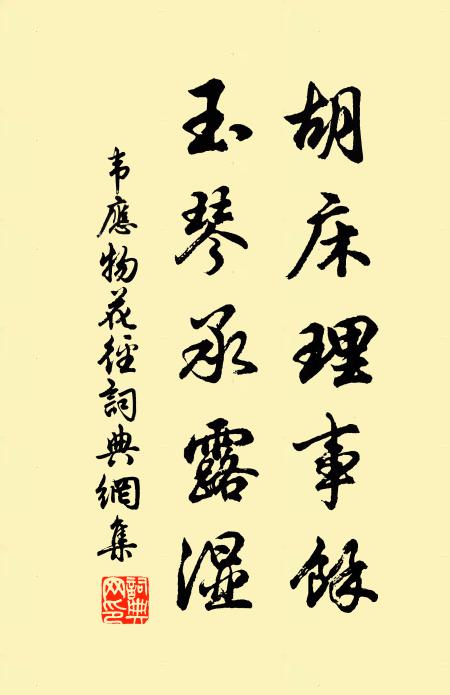 胡床理事餘
玉琴承露湿
韦應物花徑詞典網集
詞典网印